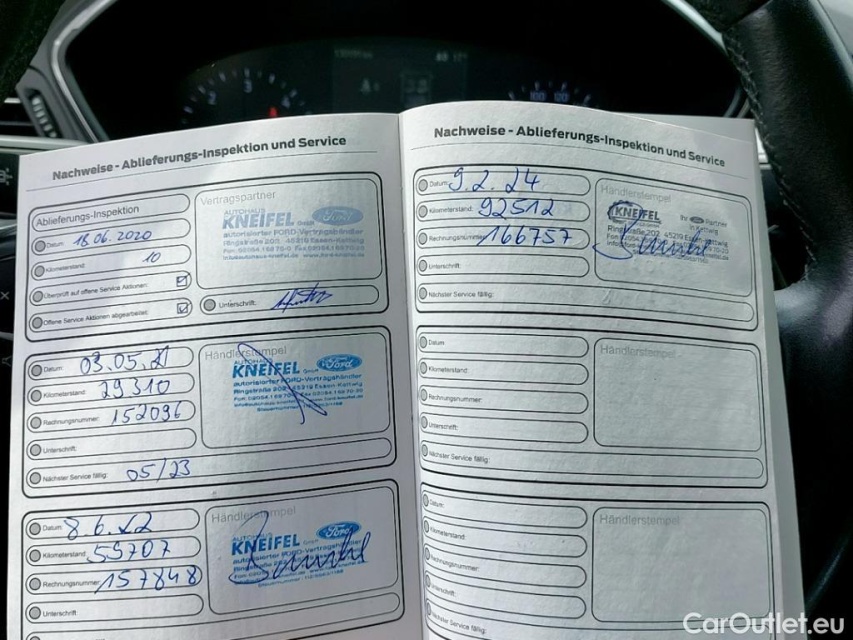 Nachweise - Ablieferungs-Inspektion und Service
Ablieferungs-Inspektion
Datum: 18.06.2020
Kilometerstand: 10
Überprüft auf offene Service Aktionen:
Offene Service Aktionen abgearbeitet:
Vertragspartner
AUTOHAUS
KNEIFEL GmbH Ford
autorisierter FORD-Vertragshändler
Ringstraße 202, 45219 Essen-Kettwig
Unterschrift:
Datum: 03.05.21
Kilometerstand: 29310
Rechnungsnummer: 152096
Unterschrift:
Nächster Service fällig: 05/23
Händlerstempel
AUTOHAUS
KNEIFEL GmbH Ford
autorisierter FORD-Vertragshändler
Ringstraße 202, 45219 Essen-Kettwig
Datum: 8.6.22
Kilometerstand: 59707
Rechnungsnummer: 157848
Unterschrift:
Händlerstempel
AUTOHAUS
KNEIFEL GmbH Ford
autorisierter FORD-Vertragshändler
Nachweise - Ablieferungs-Inspektion und Service
Datum: 9.2.24
Kilometerstand: 92512
Rechnungsnummer: 166757
Unterschrift:
Nächster Service fällig:
Händlerstempel
KNEIFEL Ihr Ford Partner
in Kettwig
Ringstraße 202, 45219 Essen-Kettwig
Datum:
Kilometerstand:
Rechnungsnummer:
Unterschrift:
Nächster Service fällig:
Händlerstempel
Datum:
Kilometerstand:
Rechnungsnummer:
Unterschrift:
Nächster Service fällig:
Händlerstempel
CarOutlet.eu